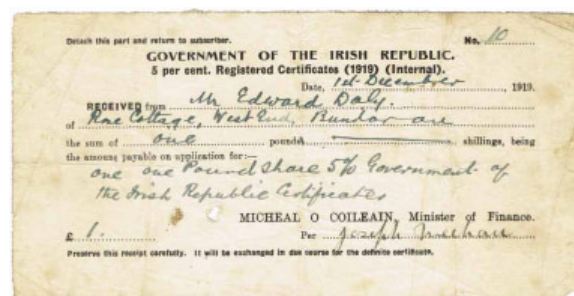 Detach this part and return to subscriber. No. 10
GOVERNMENT OF THE IRISH REPUBLIC.
5 per cent. Registered Certificates (1919) (Internal).
Date, 1st December, 1919.
RECEIVED from Mr Edward Daly.
of Rose Cottage, West End, Bundoran
the sum of one pounds shillings, being
the amount payable on application for:—
one one Pound Share 5% Government of
the Irish Republic Certificates
MICHEAL O COILEAIN, Minister of Finance.
£ 1. Per Joseph Meehan
Preserve this receipt carefully. It will be exchanged in due course for the definite certificate.